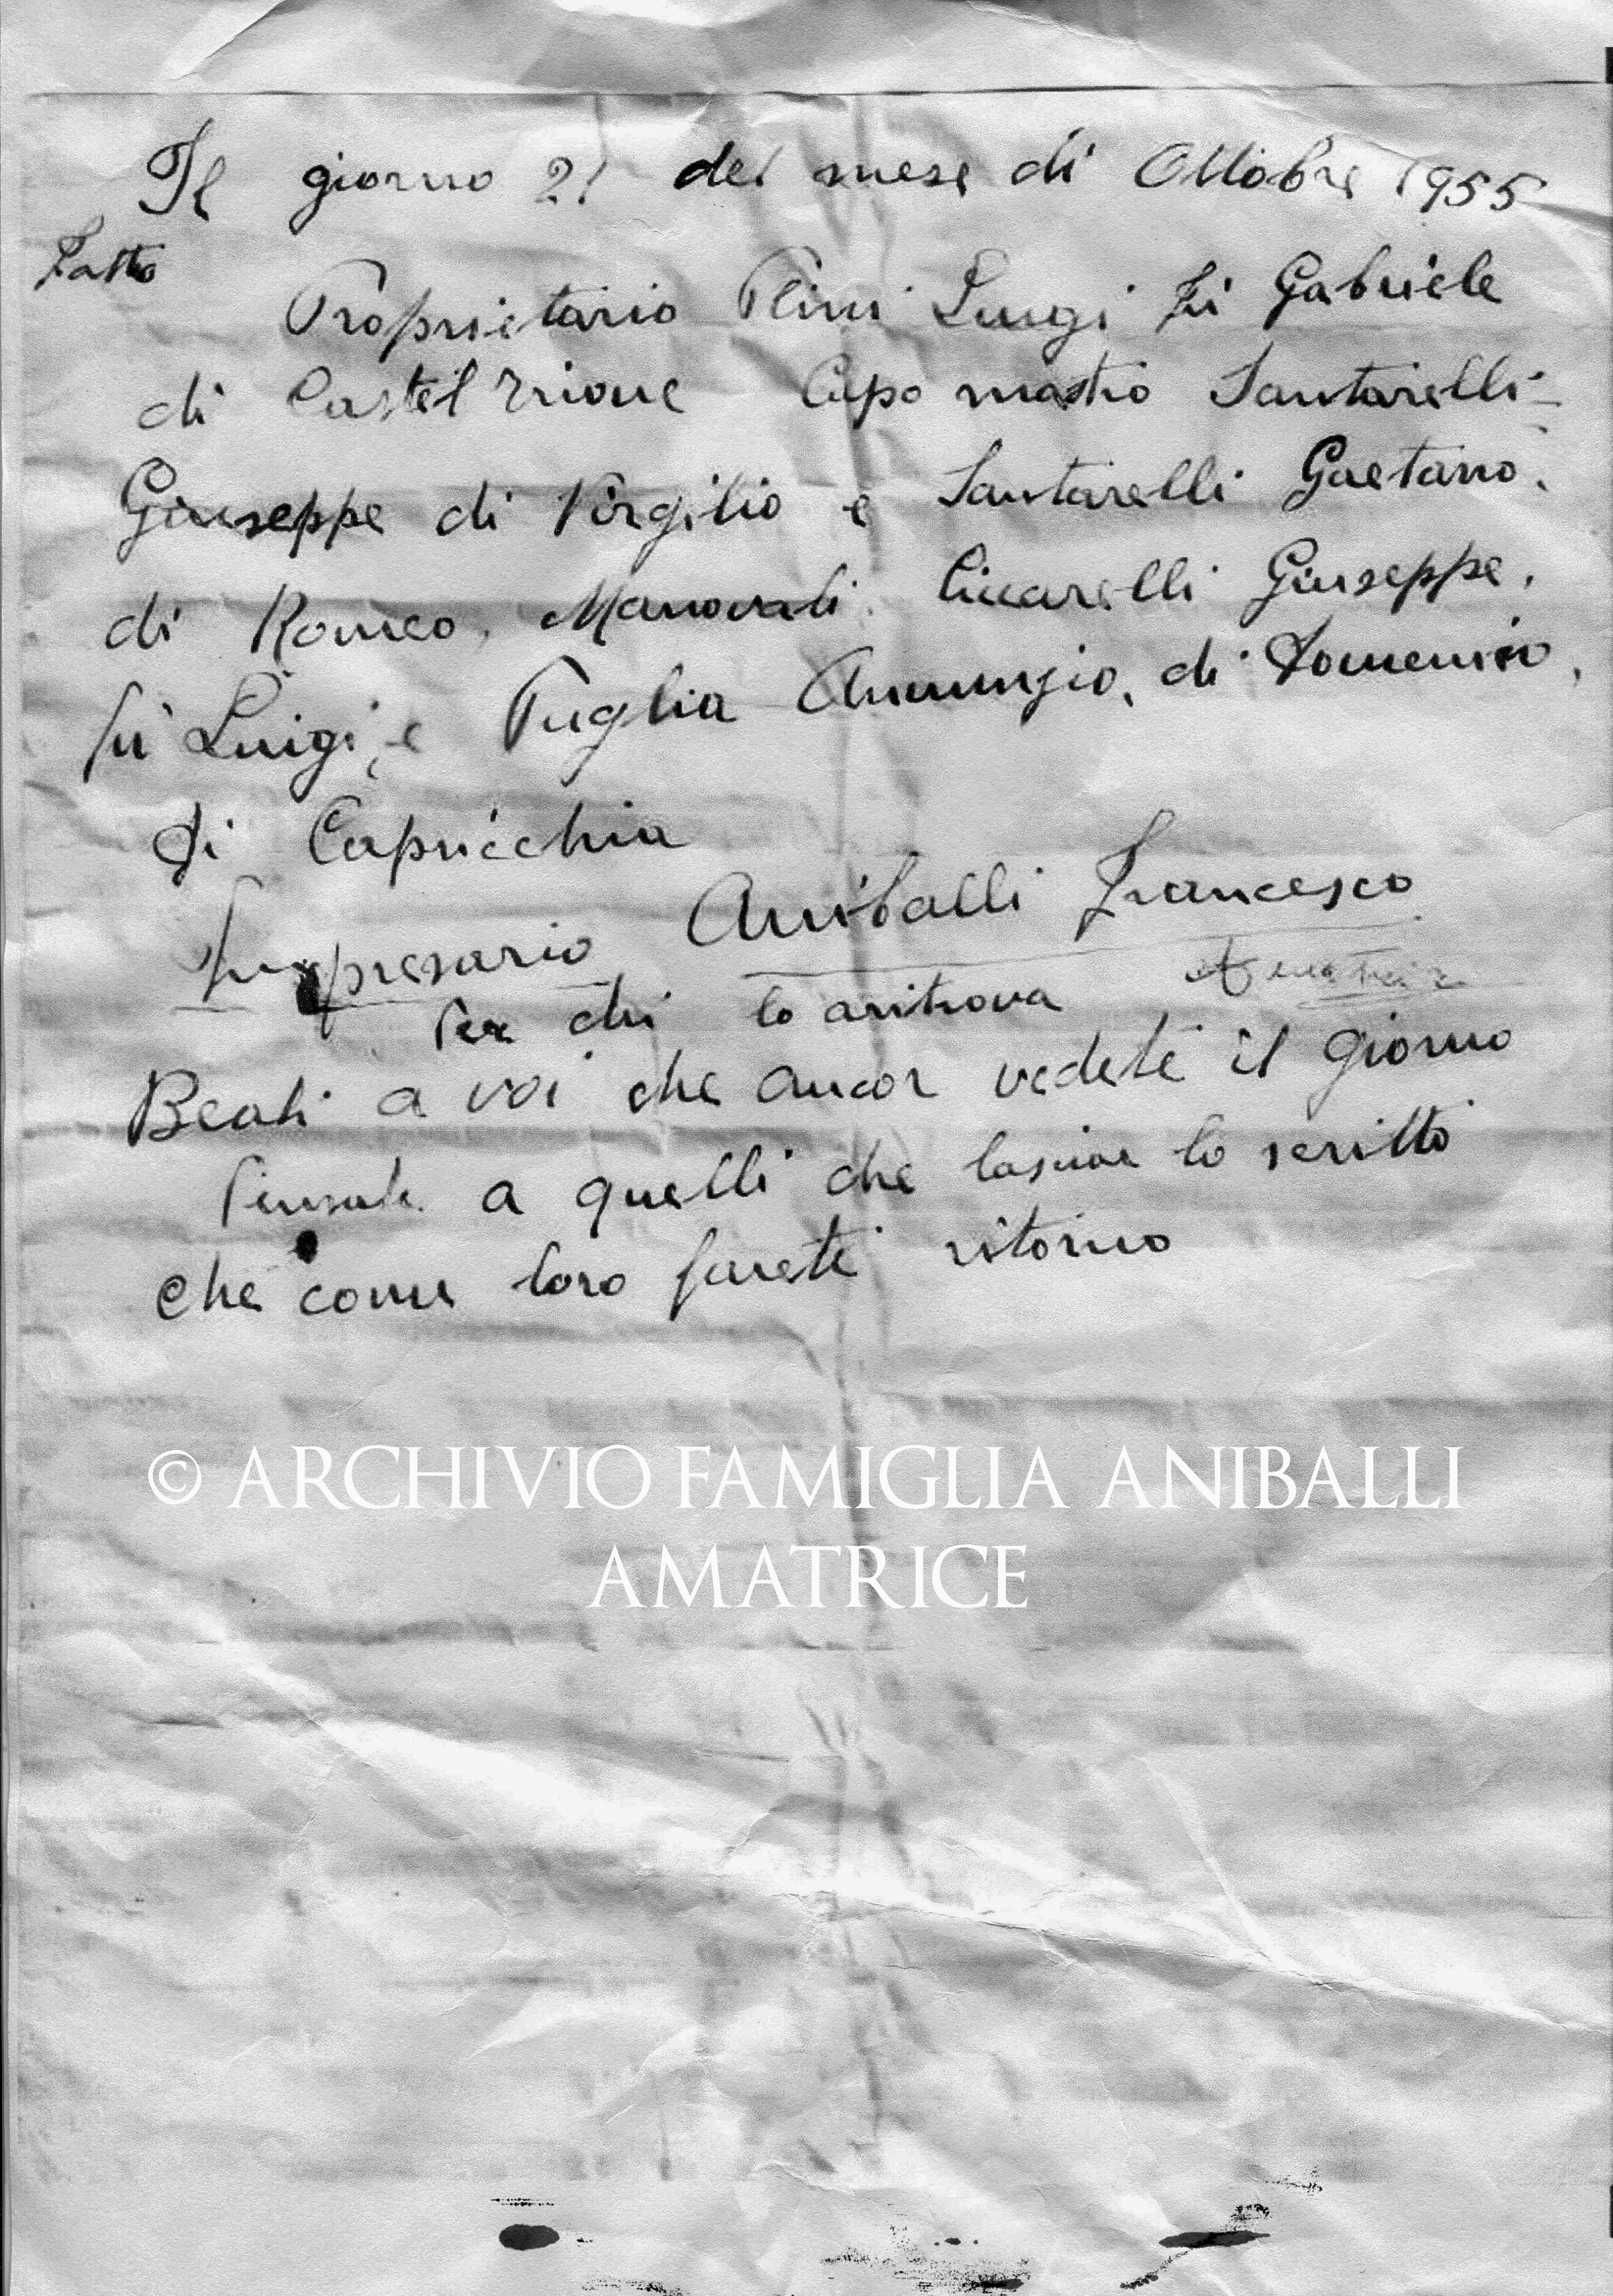 Il giorno 21 del mese di Ottobre 1955
Fatto
Proprietario Plini Luigi fù Gabriele
di Castel Trione Capo mastro Santarelli
Giuseppe di Virgilio e Santarelli Gaetano.
di Romeo, Manovali. Ciccarelli Giuseppe,
fù Luigi, e Puglia Annunzio, di Domenico,
di Capricchia
Impresario Aniballi Francesco
Amatrice
Per chi lo aritrova
Beati a voi che ancor vedete il giorno
Pensate a quelli che lascior lo scritto
che come loro farete ritorno
© ARCHIVIO FAMIGLIA ANIBALLI
AMATRICE